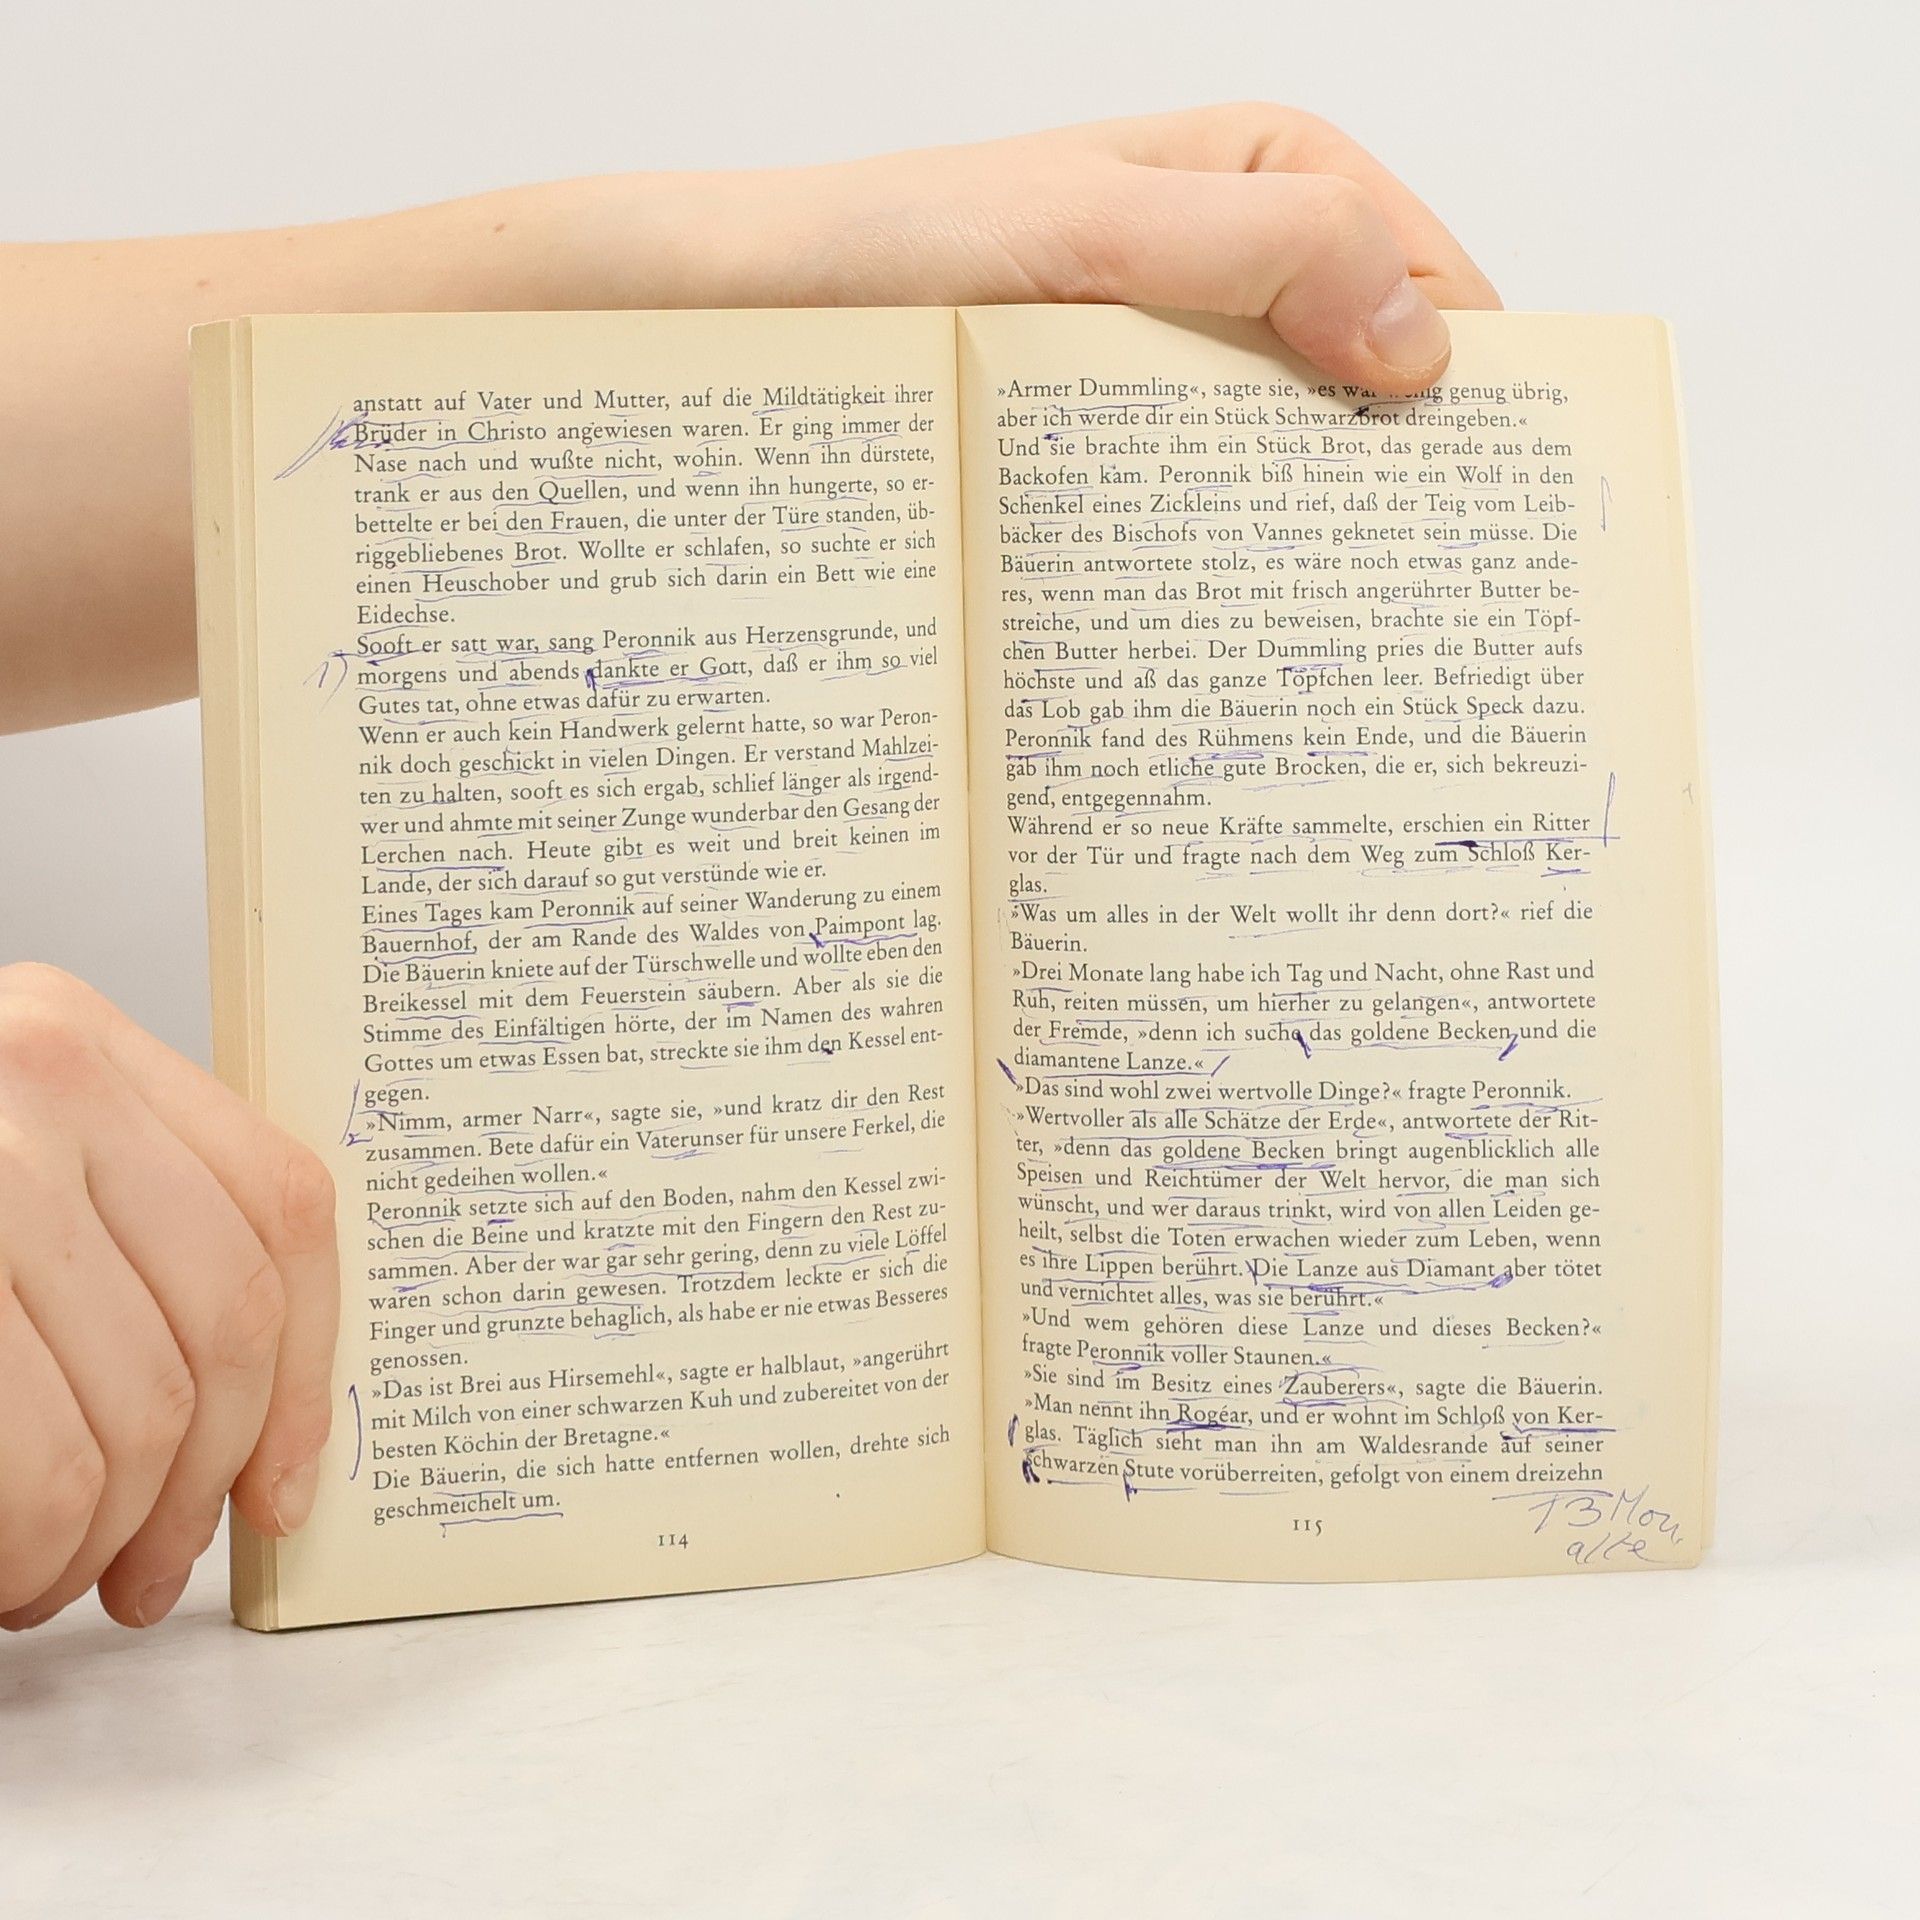 anstatt auf Vater und Mutter, auf die Mildtätigkeit ihrer
Brüder in Christo angewiesen waren. Er ging immer der
Nase nach und wußte nicht, wohin. Wenn ihn dürstete,
trank er aus den Quellen, und wenn ihn hungerte, so er-
bettelte er bei den Frauen, die unter der Türe standen, üb-
riggebliebenes Brot. Wollte er schlafen, so suchte er sich
einen Heuschober und grub sich darin ein Bett wie eine
Eidechse.
Sooft er satt war, sang Peronnik aus Herzensgrunde, und
1) morgens und abends dankte er Gott, daß er ihm so viel
Gutes tat, ohne etwas dafür zu erwarten.
Wenn er auch kein Handwerk gelernt hatte, so war Peron-
nik doch geschickt in vielen Dingen. Er verstand Mahlzei-
ten zu halten, sooft es sich ergab, schlief länger als irgend-
wer und ahmte mit seiner Zunge wunderbar den Gesang der
Lerchen nach. Heute gibt es weit und breit keinen im
Lande, der sich darauf so gut verstünde wie er.
Eines Tages kam Peronnik auf seiner Wanderung zu einem
Bauernhof, der am Rande des Waldes von Paimpont lag.
Die Bäuerin kniete auf der Türschwelle und wollte eben den
Breikessel mit dem Feuerstein säubern. Aber als sie die
Stimme des Einfältigen hörte, der im Namen des wahren
Gottes um etwas Essen bat, streckte sie ihm den Kessel ent-
gegen.
»Nimm, armer Narr«, sagte sie, »und kratz dir den Rest
zusammen. Bete dafür ein Vaterunser für unsere Ferkel, die
nicht gedeihen wollen.«
Peronnik setzte sich auf den Boden, nahm den Kessel zwi-
schen die Beine und kratzte mit den Fingern den Rest zu-
sammen. Aber der war gar sehr gering, denn zu viele Löffel
waren schon darin gewesen. Trotzdem leckte er sich die
Finger und grunzte behaglich, als habe er nie etwas Besseres
genossen.
»Das ist Brei aus Hirsemehl«, sagte er halblaut, »angerührt
mit Milch von einer schwarzen Kuh und zubereitet von der
besten Köchin der Bretagne.«
Die Bäuerin, die sich hatte entfernen wollen, drehte sich
geschmeichelt um.
114
»Armer Dummling«, sagte sie, »es war genug übrig,
aber ich werde dir ein Stück Schwarzbrot dreingeben.«
Und sie brachte ihm ein Stück Brot, das gerade aus dem
Backofen kam. Peronnik biß hinein wie ein Wolf in den
Schenkel eines Zickleins und rief, daß der Teig vom Leib-
bäcker des Bischofs von Vannes geknetet sein müsse. Die
Bäuerin antwortete stolz, es wäre noch etwas ganz ande-
res, wenn man das Brot mit frisch angerührter Butter be-
streiche, und um dies zu beweisen, brachte sie ein Töpf-
chen Butter herbei. Der Dummling pries die Butter aufs
höchste und aß das ganze Töpfchen leer. Befriedigt über
das Lob gab ihm die Bäuerin noch ein Stück Speck dazu.
Peronnik fand des Rühmens kein Ende, und die Bäuerin
gab ihm noch etliche gute Brocken, die er, sich bekreuzi-
gend, entgegennahm.
Während er so neue Kräfte sammelte, erschien ein Ritter
vor der Tür und fragte nach dem Weg zum Schloß Ker-
glas.
»Was um alles in der Welt wollt ihr denn dort?« rief die
Bäuerin.
»Drei Monate lang habe ich Tag und Nacht, ohne Rast und
Ruh, reiten müssen, um hierher zu gelangen«, antwortete
der Fremde, »denn ich suche das goldene Becken und die
diamantene Lanze.«
»Das sind wohl zwei wertvolle Dinge?« fragte Peronnik.
»Wertvoller als alle Schätze der Erde«, antwortete der Rit-
ter, »denn das goldene Becken bringt augenblicklich alle
Speisen und Reichtümer der Welt hervor, die man sich
wünscht, und wer daraus trinkt, wird von allen Leiden ge-
heilt, selbst die Toten erwachen wieder zum Leben, wenn
es ihre Lippen berührt. Die Lanze aus Diamant aber tötet
und vernichtet alles, was sie berührt.«
»Und wem gehören diese Lanze und dieses Becken?«
fragte Peronnik voller Staunen.«
»Sie sind im Besitz eines Zauberers«, sagte die Bäuerin.
»Man nennt ihn Rogéar, und er wohnt im Schloß von Ker-
glas. Täglich sieht man ihn am Waldesrande auf seiner
schwarzen Stute vorüberreiten, gefolgt von einem dreizehn
13 Mon.
alte
115